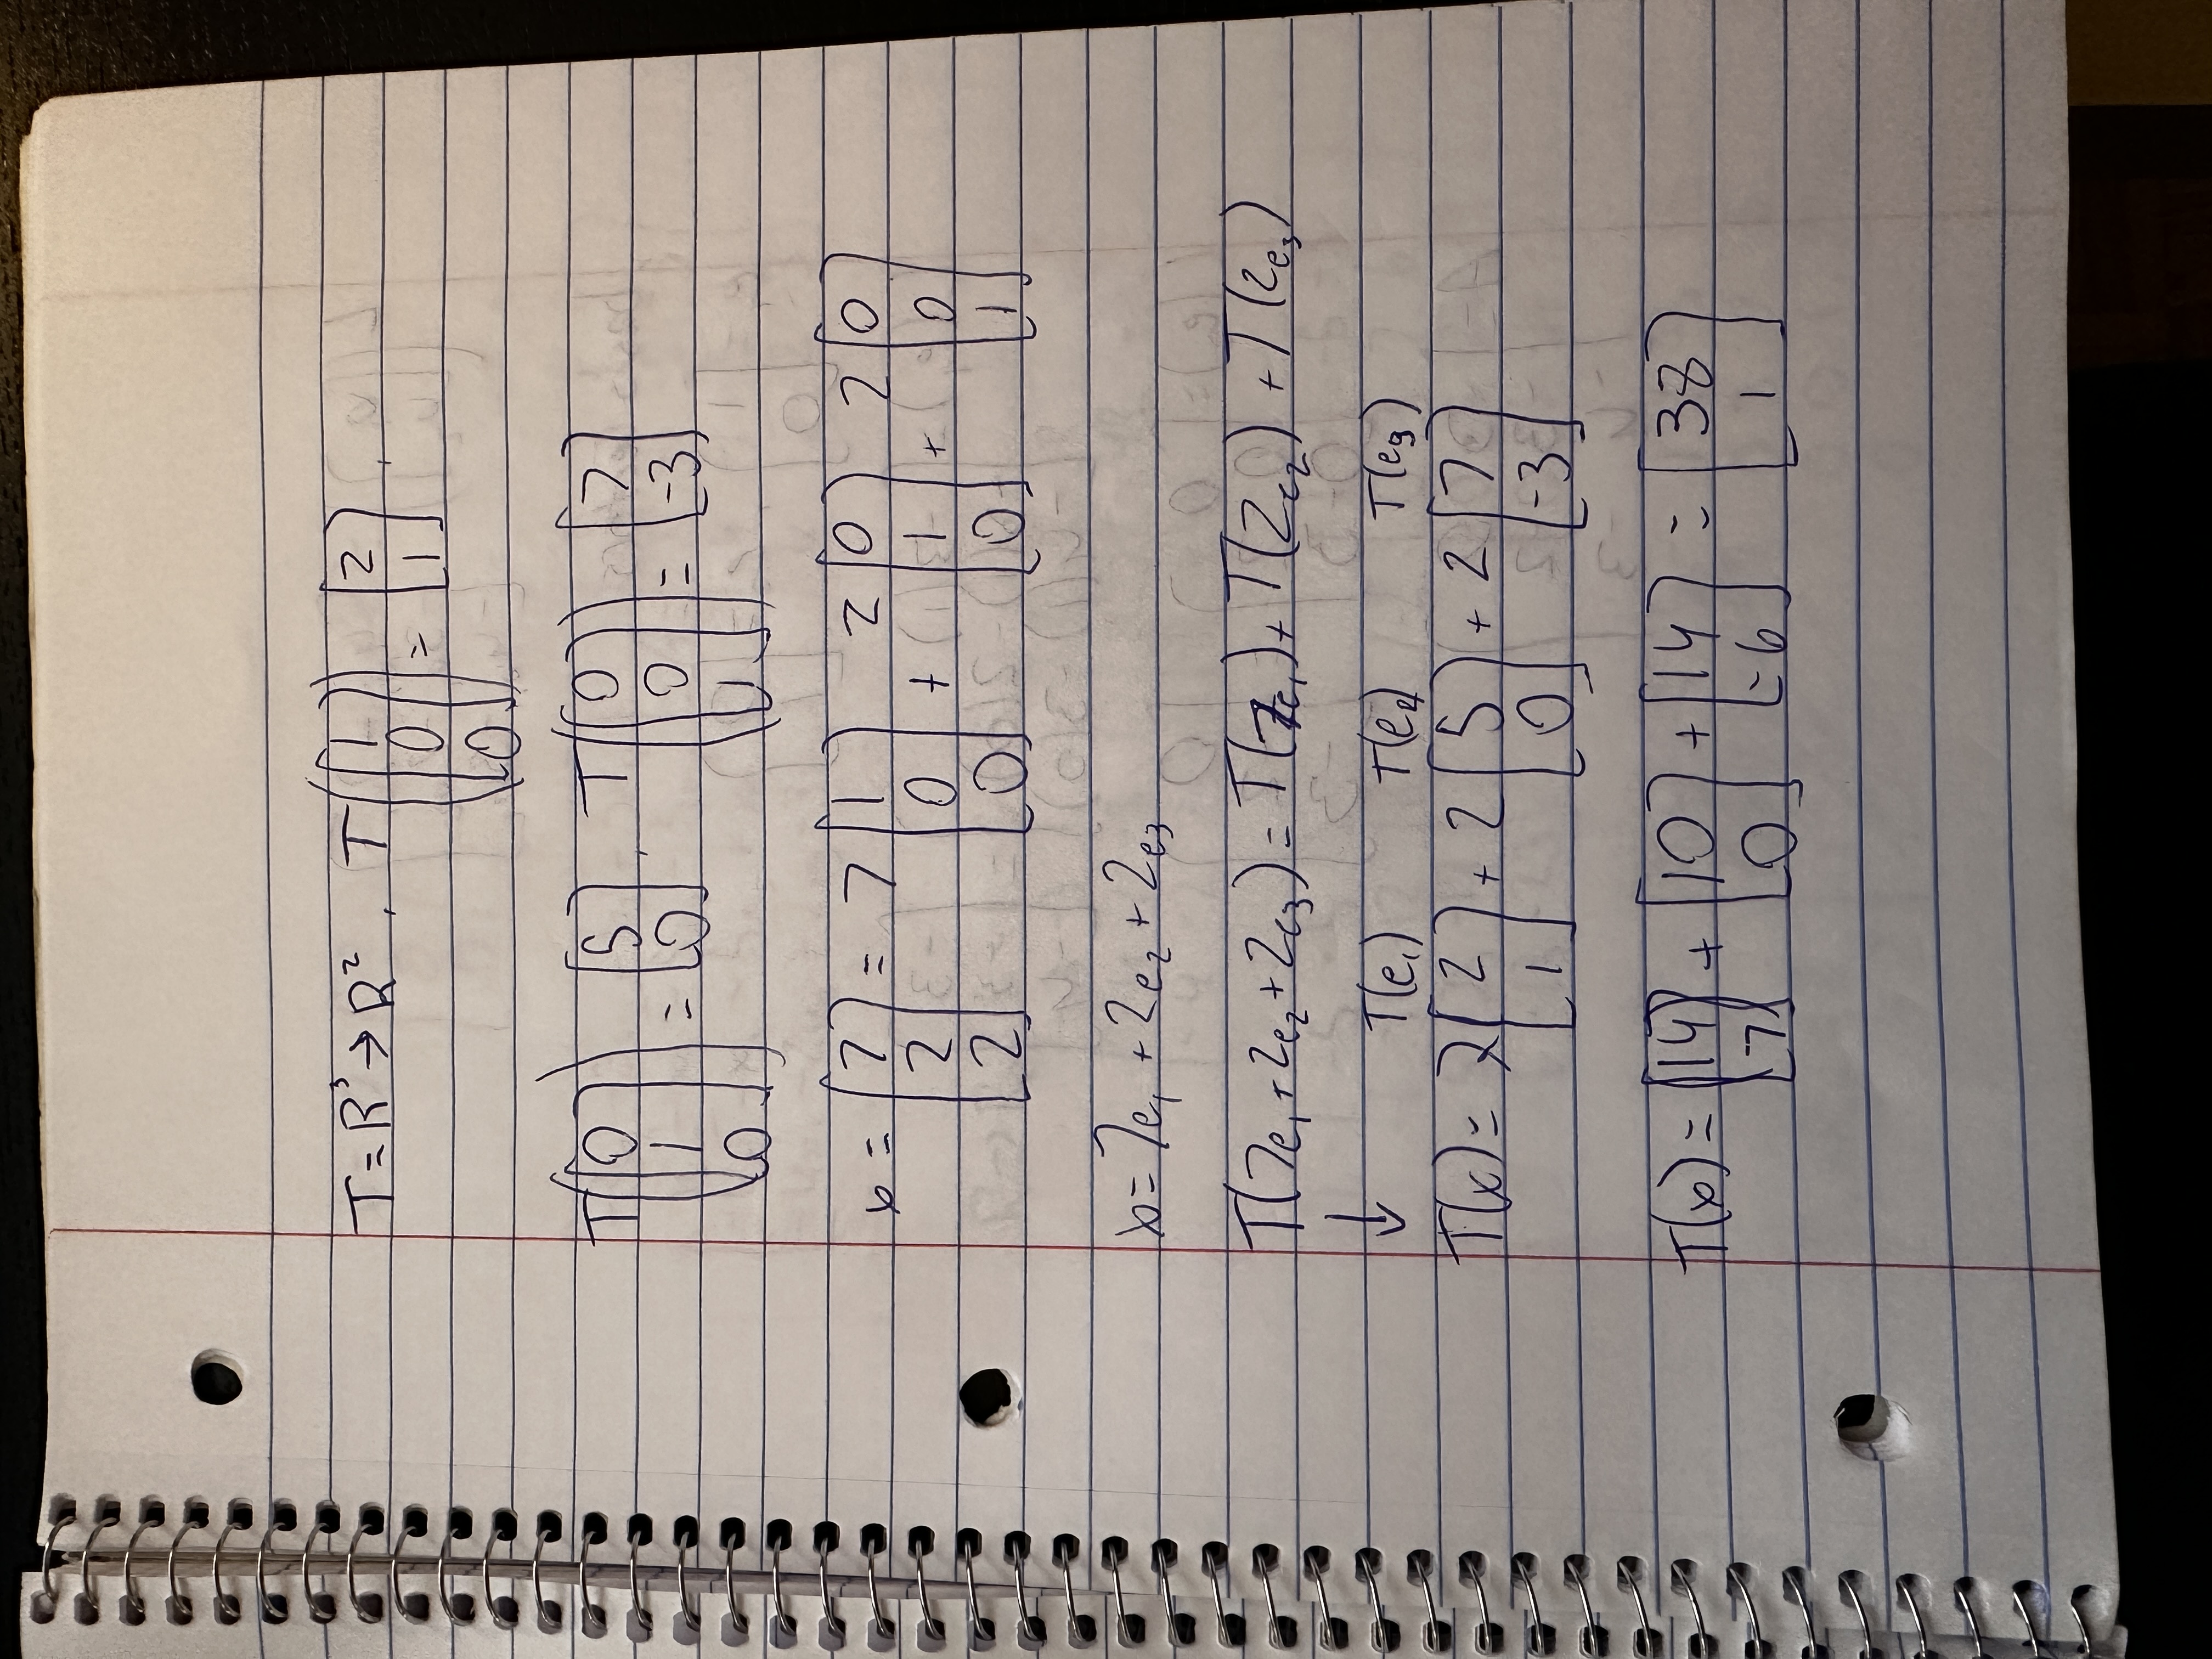 T = R³ → R², T([1 0 0]) = [2 1],
T([0 1 0]) = [5 0], T([0 0 1]) = [7 -3]
x = [7 2 2] = 7[1 0 0] + 2[0 1 0] + 2[0 0 1]
x = 7e₁ + 2e₂ + 2e₃
T(7e₁ + 2e₂ + 2e₃) = T(7e₁) + T(2e₂) + T(2e₃)
↓ T(e₁) T(e₂) T(e₃)
T(x) = 7[2 1] + 2[5 0] + 2[7 -3]
T(x) = [14 7] + [10 0] + [14 -6] = [38 1]